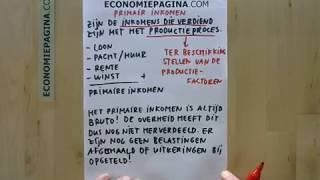 ECONOMIEPAGINA.COM
ECONOMIEPAGINA.COM
PRIMAIR INKOMEN
ZIJN DE INKOMENS DIE VERDIEND
ZIJN MET HET PRODUCTIEPROCES.
- LOON
- PACHT/HUUR
- RENTE
- WINST +
PRIMAIRE INKOMEN
TER BESCHIKKING
STELLEN VAN DE
PRODUCTIE-
FACTOREN
HET PRIMAIRE INKOMEN IS ALTIJD
BRUTO! DE OVERHEID HEEFT DIT
DUS NOG NIET HERVERDEELD. ER
ZIJN NOG GEEN BELASTINGEN
AFGEHAALD OF UITKERINGEN BIJ
OPGETELD!